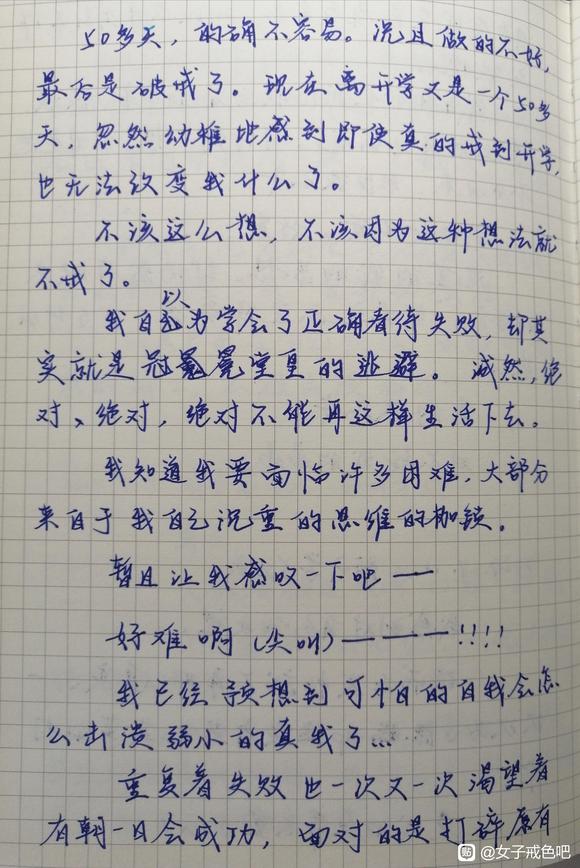 50多天，的确不容易。况且做的不好，
最后是破戒了。现在离开学又是一个50多
天，忽然幼稚地感到即使真的戒到开学，
也无法改变我什么了。
不该这么想，不该因为这种想法就
不戒了。
我自以为学会了正确看待失败，却其
实就是冠冕堂皇的逃避。诚然，绝
对、绝对，绝对不能再这样生活下去。
我知道我要面临许多困难，大部分
来自于我自己沉重的思维的枷锁。
暂且让我感叹一下吧——
好难啊（尖叫）———!!!!
我已经预想到可怕的自我会怎
么击溃弱小的真我了...
重复着失败也一次又一次渴望着
有朝一日会成功，面对的是打碎原有
贴 @女子戒色吧